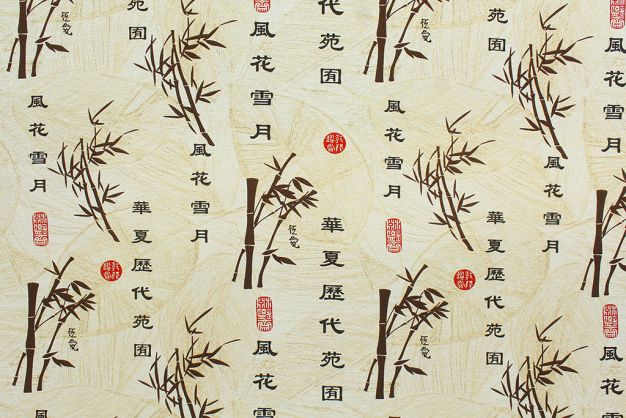 風花雪月
風花雪
風花雪月
苑囿
華夏歷代苑囿
風花雪月
代苑囿
華夏歷代苑囿
風花雪月
風花雪
風花雪月
苑囿
華夏歷代苑囿
風花雪月